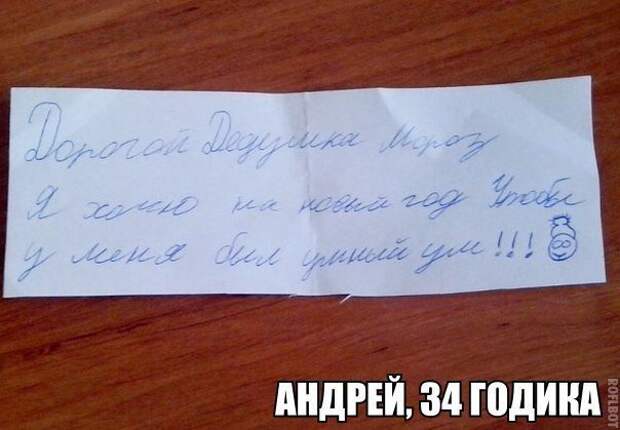 Дорогой Дедушка Мороз
Я хочу на новый год Чтобы
у меня был умный ум!!!
АНДРЕЙ, 34 ГОДИКА
ROFLBOT